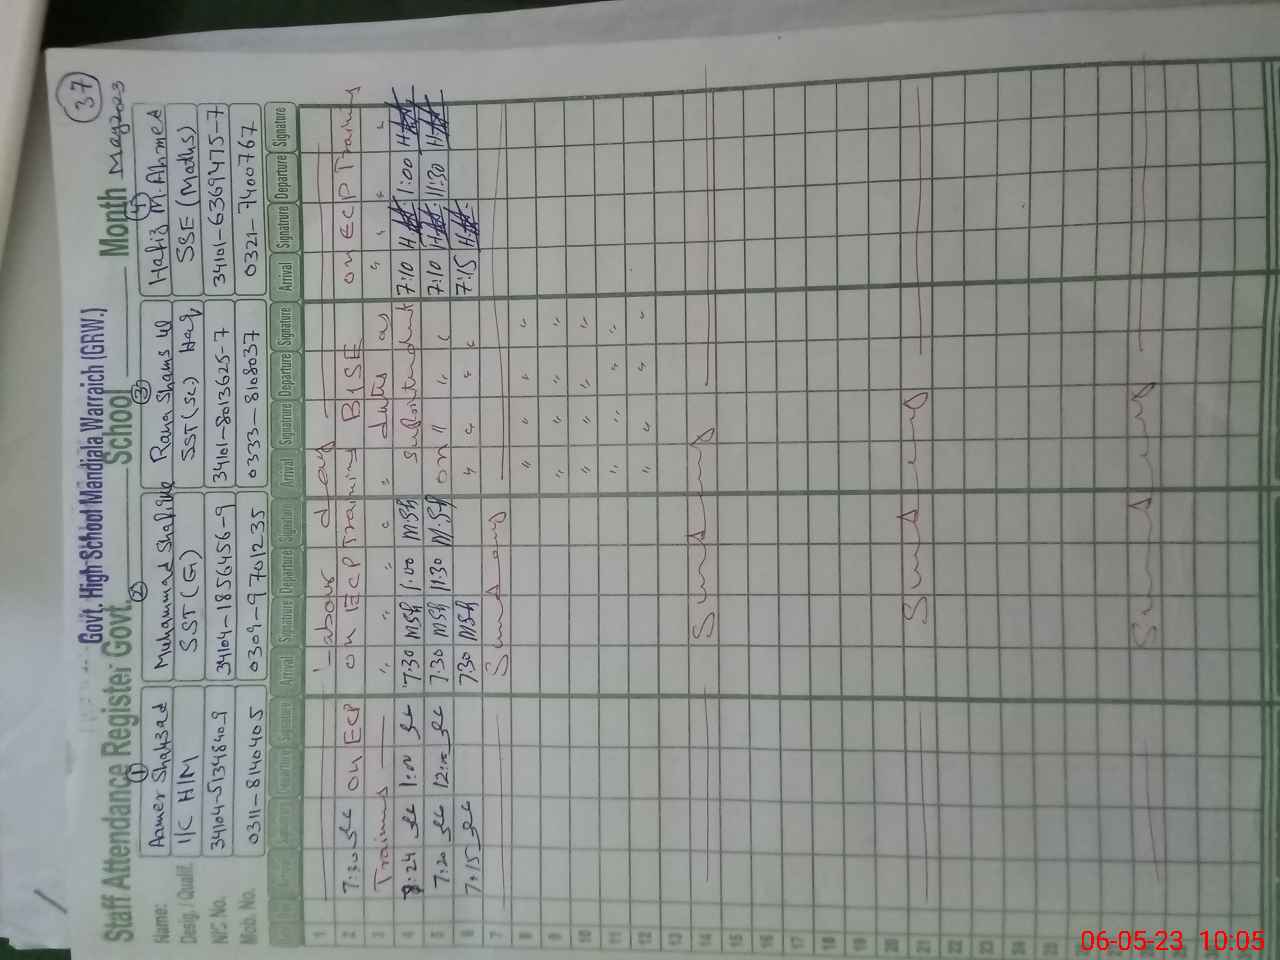 37
Govt. High School Mandiala Warraich (GRW.)
Staff Attendance Register Govt. School Month May 2023
Name: ① Aamer Shahzad ② Muhammad Shafique ③ Rana Shams ul Haq ④ Hafiz M. Ahmed
Desig. / Qualif. I/C H/M SST (G) SST (Sc) SSE (Maths)
N.I.C No. 34104-5134840-9 34104-1856456-9 34101-8013625-7 34101-6369475-7
Mob. No. 0311-8140405 0304-9701235 0333-8108037 0321-7400767
Arrival Signature Departure Signature Arrival Signature Departure Signature Arrival Signature Departure Signature Arrival Signatrure Departure Signature
1 Labour day
2 7:30 on ECP on ECP Training BISE on ECP Training
3 Training " " " " " duties as " " " "
4 8:24 1:00 7:30 MSH 1:00 MSH 7:10 1:00
5 7:20 7:30 MSH 11:30 MSH on " " " 7:10 11:30
6 7:15 7:30 MSH " " " " 7:15
7 Sunday
8 " " " "
9 " " " "
10 " " " "
11 " " " "
12 " " " "
13
14 Sunday
15
16
17
18
19
20
21 Sunday
22
23
24
25
26
27
28 Sunday
29
30
06-05-23 10:05